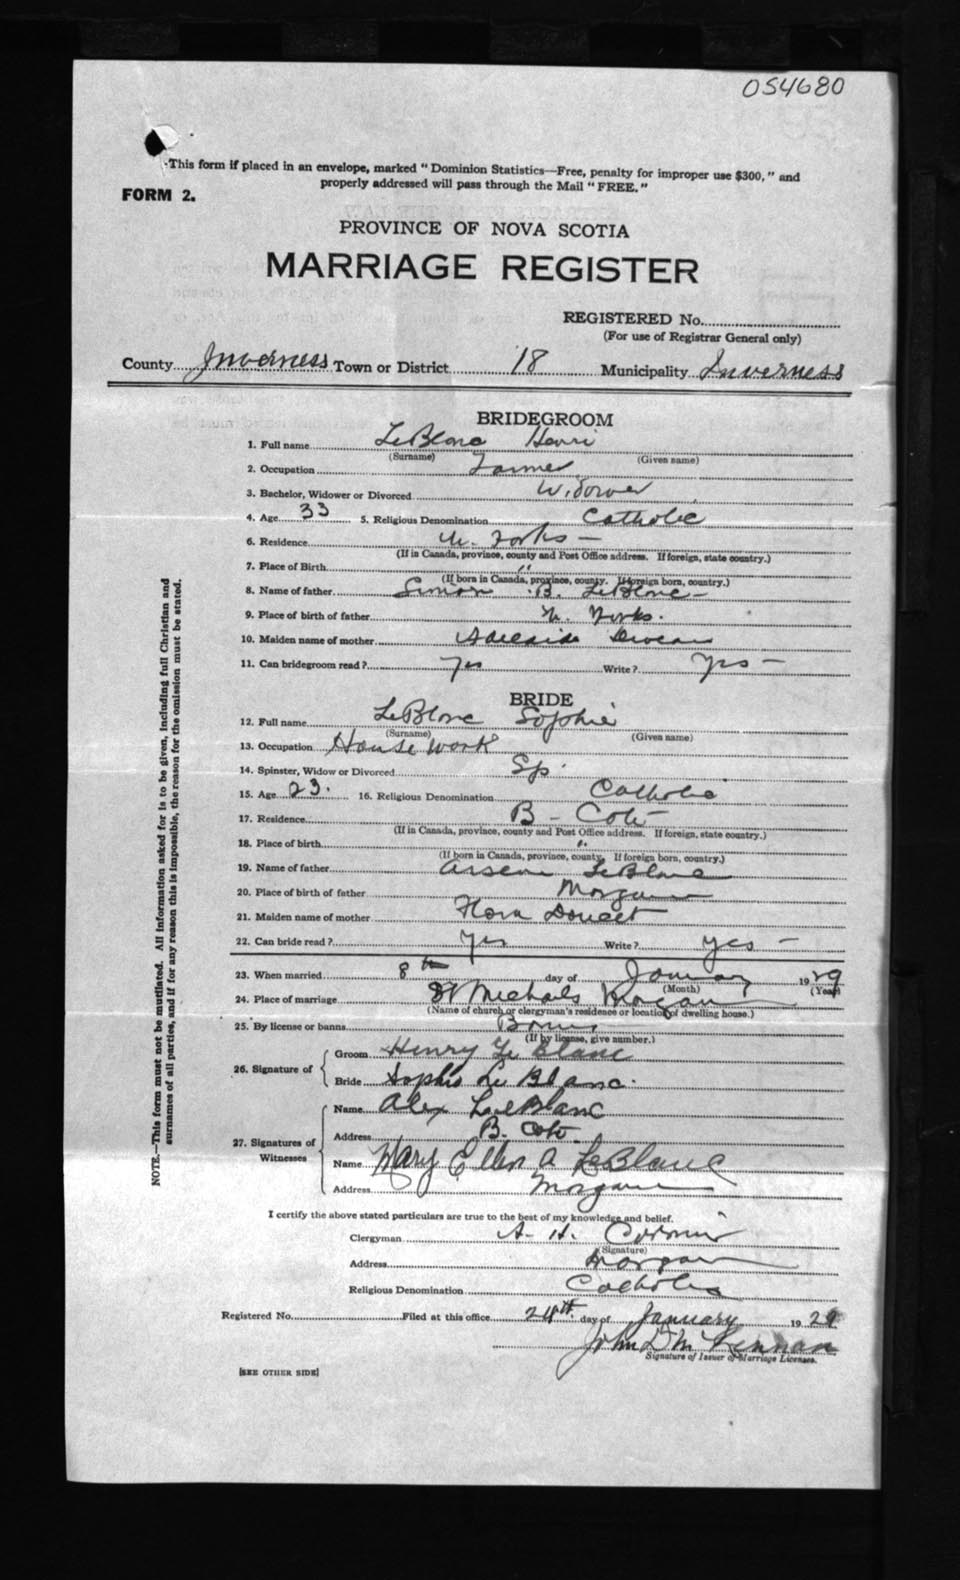 054680
This form if placed in an envelope, marked "Dominion Statistics—Free, penalty for improper use $300," and
properly addressed will pass through the Mail "FREE."
FORM 2.
PROVINCE OF NOVA SCOTIA
MARRIAGE REGISTER
REGISTERED No.
(For use of Registrar General only)
County Inverness Town or District 18 Municipality Inverness
BRIDEGROOM
1. Full name LeBlanc Henri
(Surname) (Given name)
2. Occupation Farmer
3. Bachelor, Widower or Divorced Widower
4. Age 33 5. Religious Denomination Catholic
6. Residence Forks —
(If in Canada, province, county and Post Office address. If foreign, state country.)
7. Place of Birth "
(If born in Canada, province, county. If foreign born, country.)
8. Name of father Simon B. LeBlanc —
9. Place of birth of father Forks.
10. Maiden name of mother Adelaide
11. Can bridegroom read? Yes Write? Yes —
BRIDE
12. Full name LeBlanc Sophie
(Surname) (Given name)
13. Occupation House work
14. Spinster, Widow or Divorced Sp.
15. Age 23. 16. Religious Denomination Catholic
17. Residence B - Cote
(If in Canada, province, county and Post Office address. If foreign, state country.)
18. Place of birth "
(If born in Canada, province, county. If foreign born, country.)
19. Name of father Arsene LeBlanc
20. Place of birth of father
21. Maiden name of mother Flora Doucet
22. Can bride read? Yes Write? yes —
23. When married 8th day of January 1929
(Month) (Year)
24. Place of marriage St Michaels
(Name of church or clergyman's residence or location of dwelling house.)
25. By license or banns Banns
(If by license, give number.)
26. Signature of
Groom Henry Le Blanc
Bride Sophie Le Blanc.
27. Signatures of Witnesses
Name Alex LeBlanc
Address B. Cote.
Name Mary Ellen A LeBlanc
Address
I certify the above stated particulars are true to the best of my knowledge and belief.
Clergyman A. H. Cormier
(Signature)
Address
Religious Denomination Catholic
Registered No. Filed at this office 24th. day of January 1929
John D Mc Lennan
Signature of Issuer of Marriage Licenses.
[SEE OTHER SIDE]
NOTE.—This form must not be mutilated. All information asked for is to be given, including full Christian and
surnames of all parties, and if for any reason this is impossible, the reason for the omission must be stated.